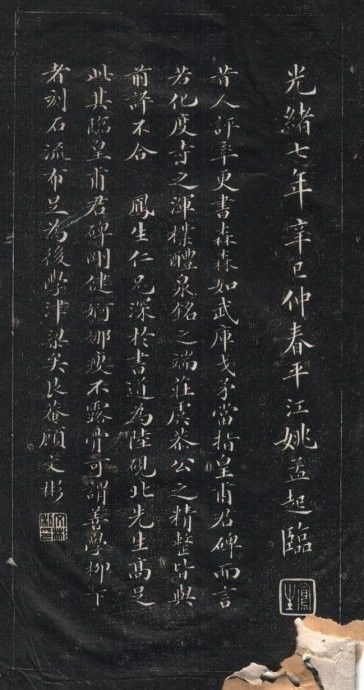 光緒七年辛巳仲春平江姚孟起臨
昔人評率更書森森如武庫戈矛當指皇甫君碑而言
若化度寺之渾樸醴泉銘之端莊虞恭公之精整皆與
前評不合 鳳生仁兄深於書道為陸硯北先生高足
此其臨皇甫君碑剛健婀娜瘦不露骨可謂善學柳下
者刻石流布足為後學津梁矣艮菴顧文彬
鳳生